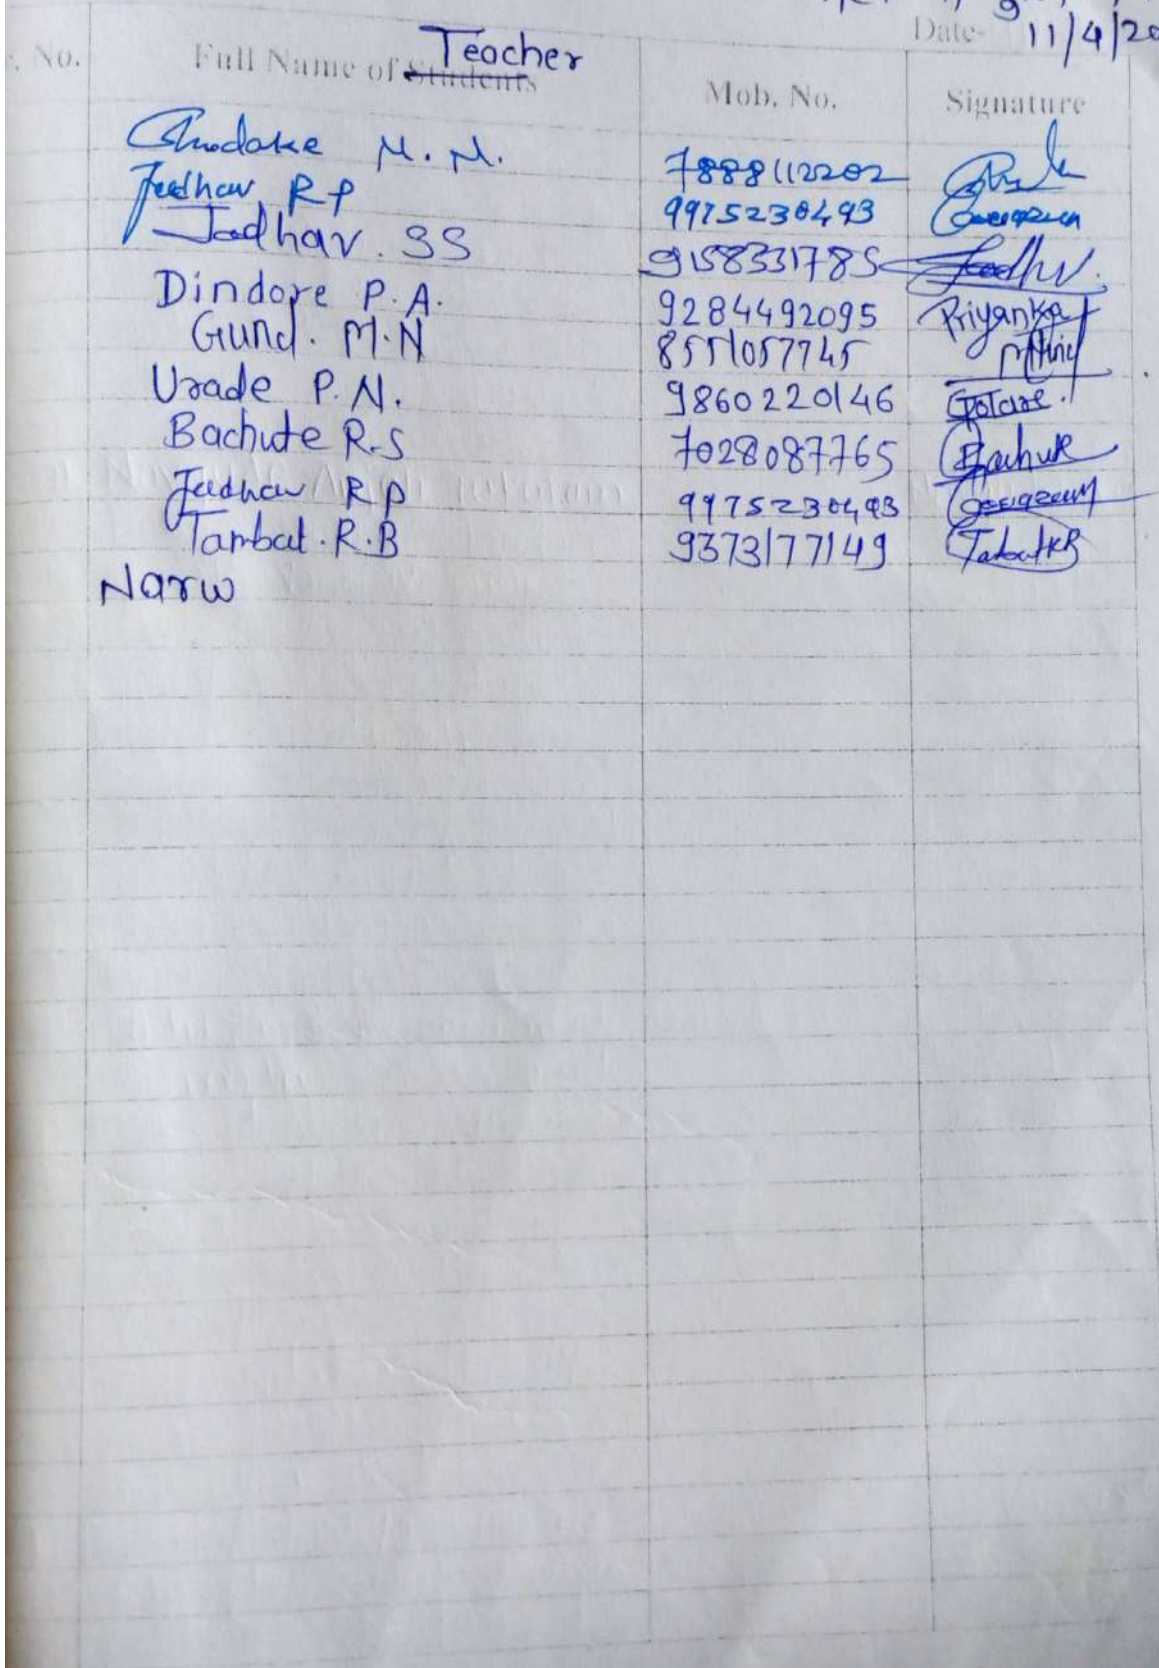 Date- 11/4/20
No. Full Name of Students Teacher Mob. No. Signature
Ghodake M. M. 7888112202
Jadhav R P 9975230493
Jadhav. SS 9158331785 Jadhv.
Dindore P. A. 9284492095 Priyanka
Gund. M.N 8551057745
Urade P. N. 9860220146
Bachute R.S 7028087765 Bachute
Jadhav R P 9975230493
Tambat. R.B 9373177149 TabatRB
Narw